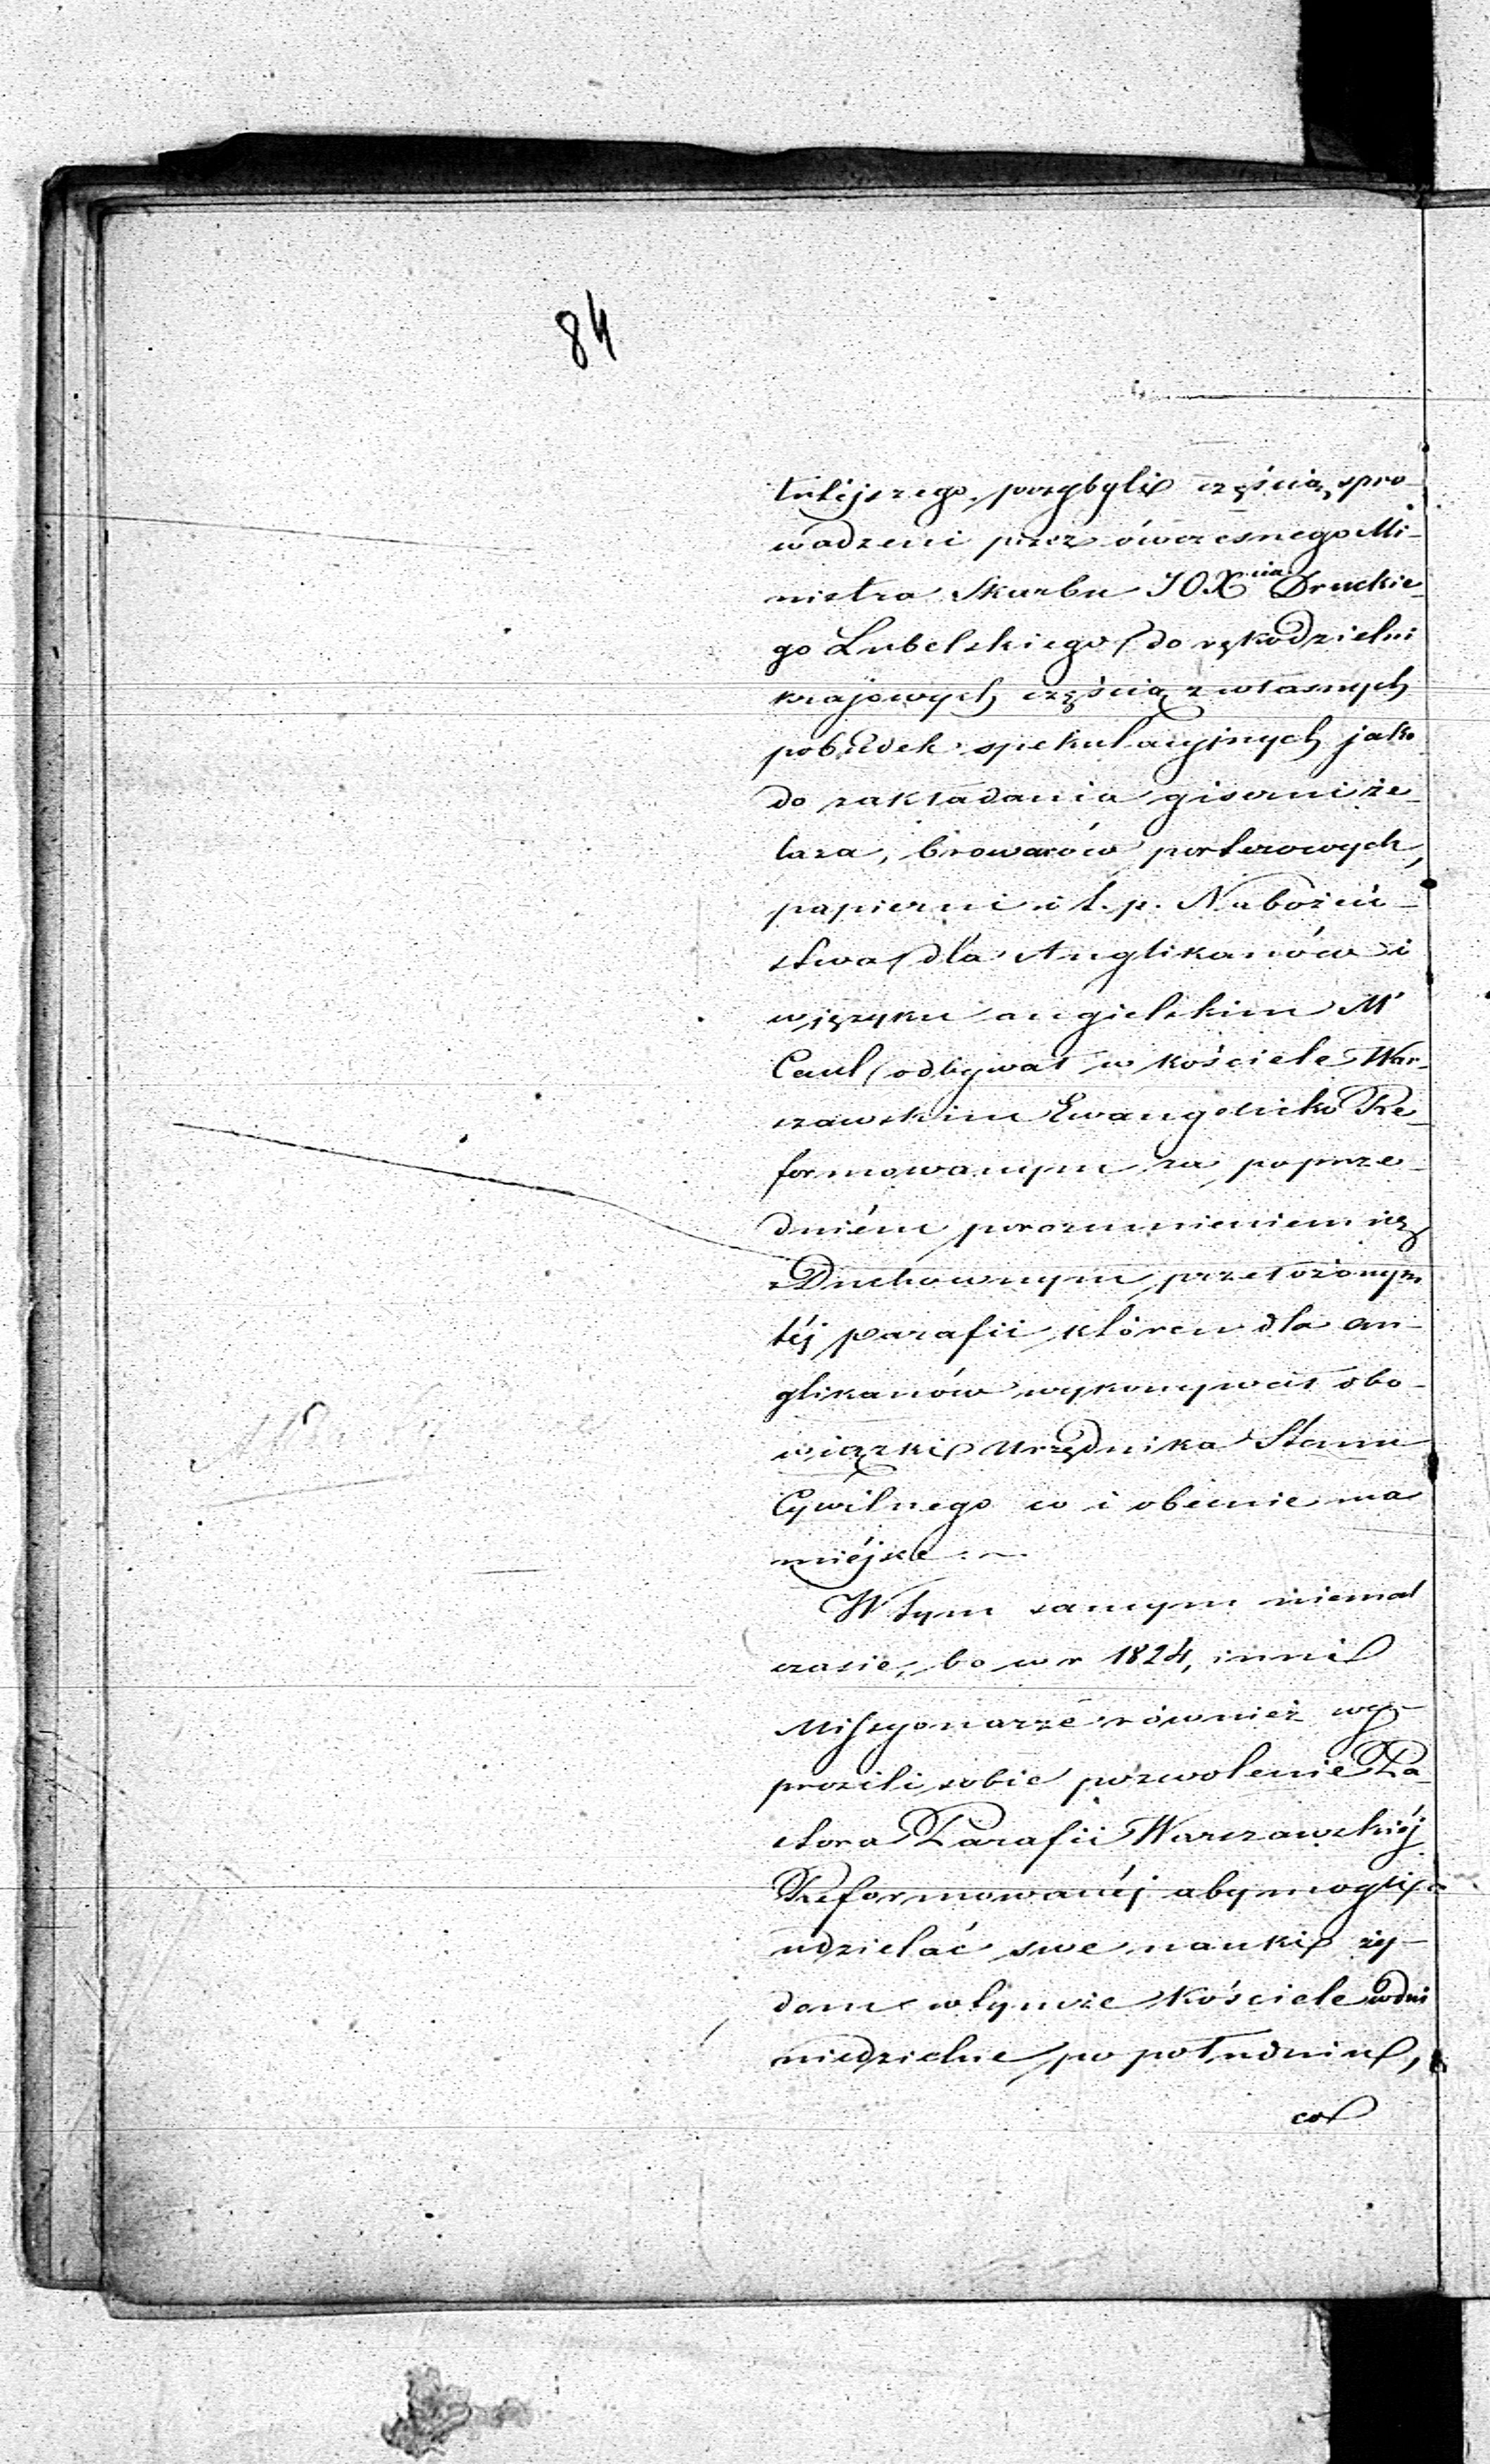 84
tutéjszego, przybyli częścią spro-
wadzeni przez ówczesnego Mi-
nistra Skarbu JOXcia Druckie-
go Lubelskiego do rękodzielni
krajowych częścią z własnych
pobudek spekulacyjnych jako
do zakładania giserni że-
laza, browarów porterowych,
papierni i t. p. Nabożeń-
stwa dla Anglikanów i
w języku angielskim M'
Caul odbywał w kościele War-
szawskim Ewangelicko Re-
formowanym za poprze-
dniém porozumieniem się
z Duchownym przełożonym
téj parafii któren dla an-
glikanów wykonywał obo-
wiązki Urzędnika Stanu
Cywilnego co i obecnie ma
miéjsce. ~
W tym samym niemal
czasie, bo w r 1824, inni
Missyonarze również wy-
prosili sobie pozwolenie Pa-
stora Parafii Warszawskiéj
Reformowanéj aby mogli
udzielać swe nauki ży-
dom w tymże Kościele w dni
niedzielne po południu,
co